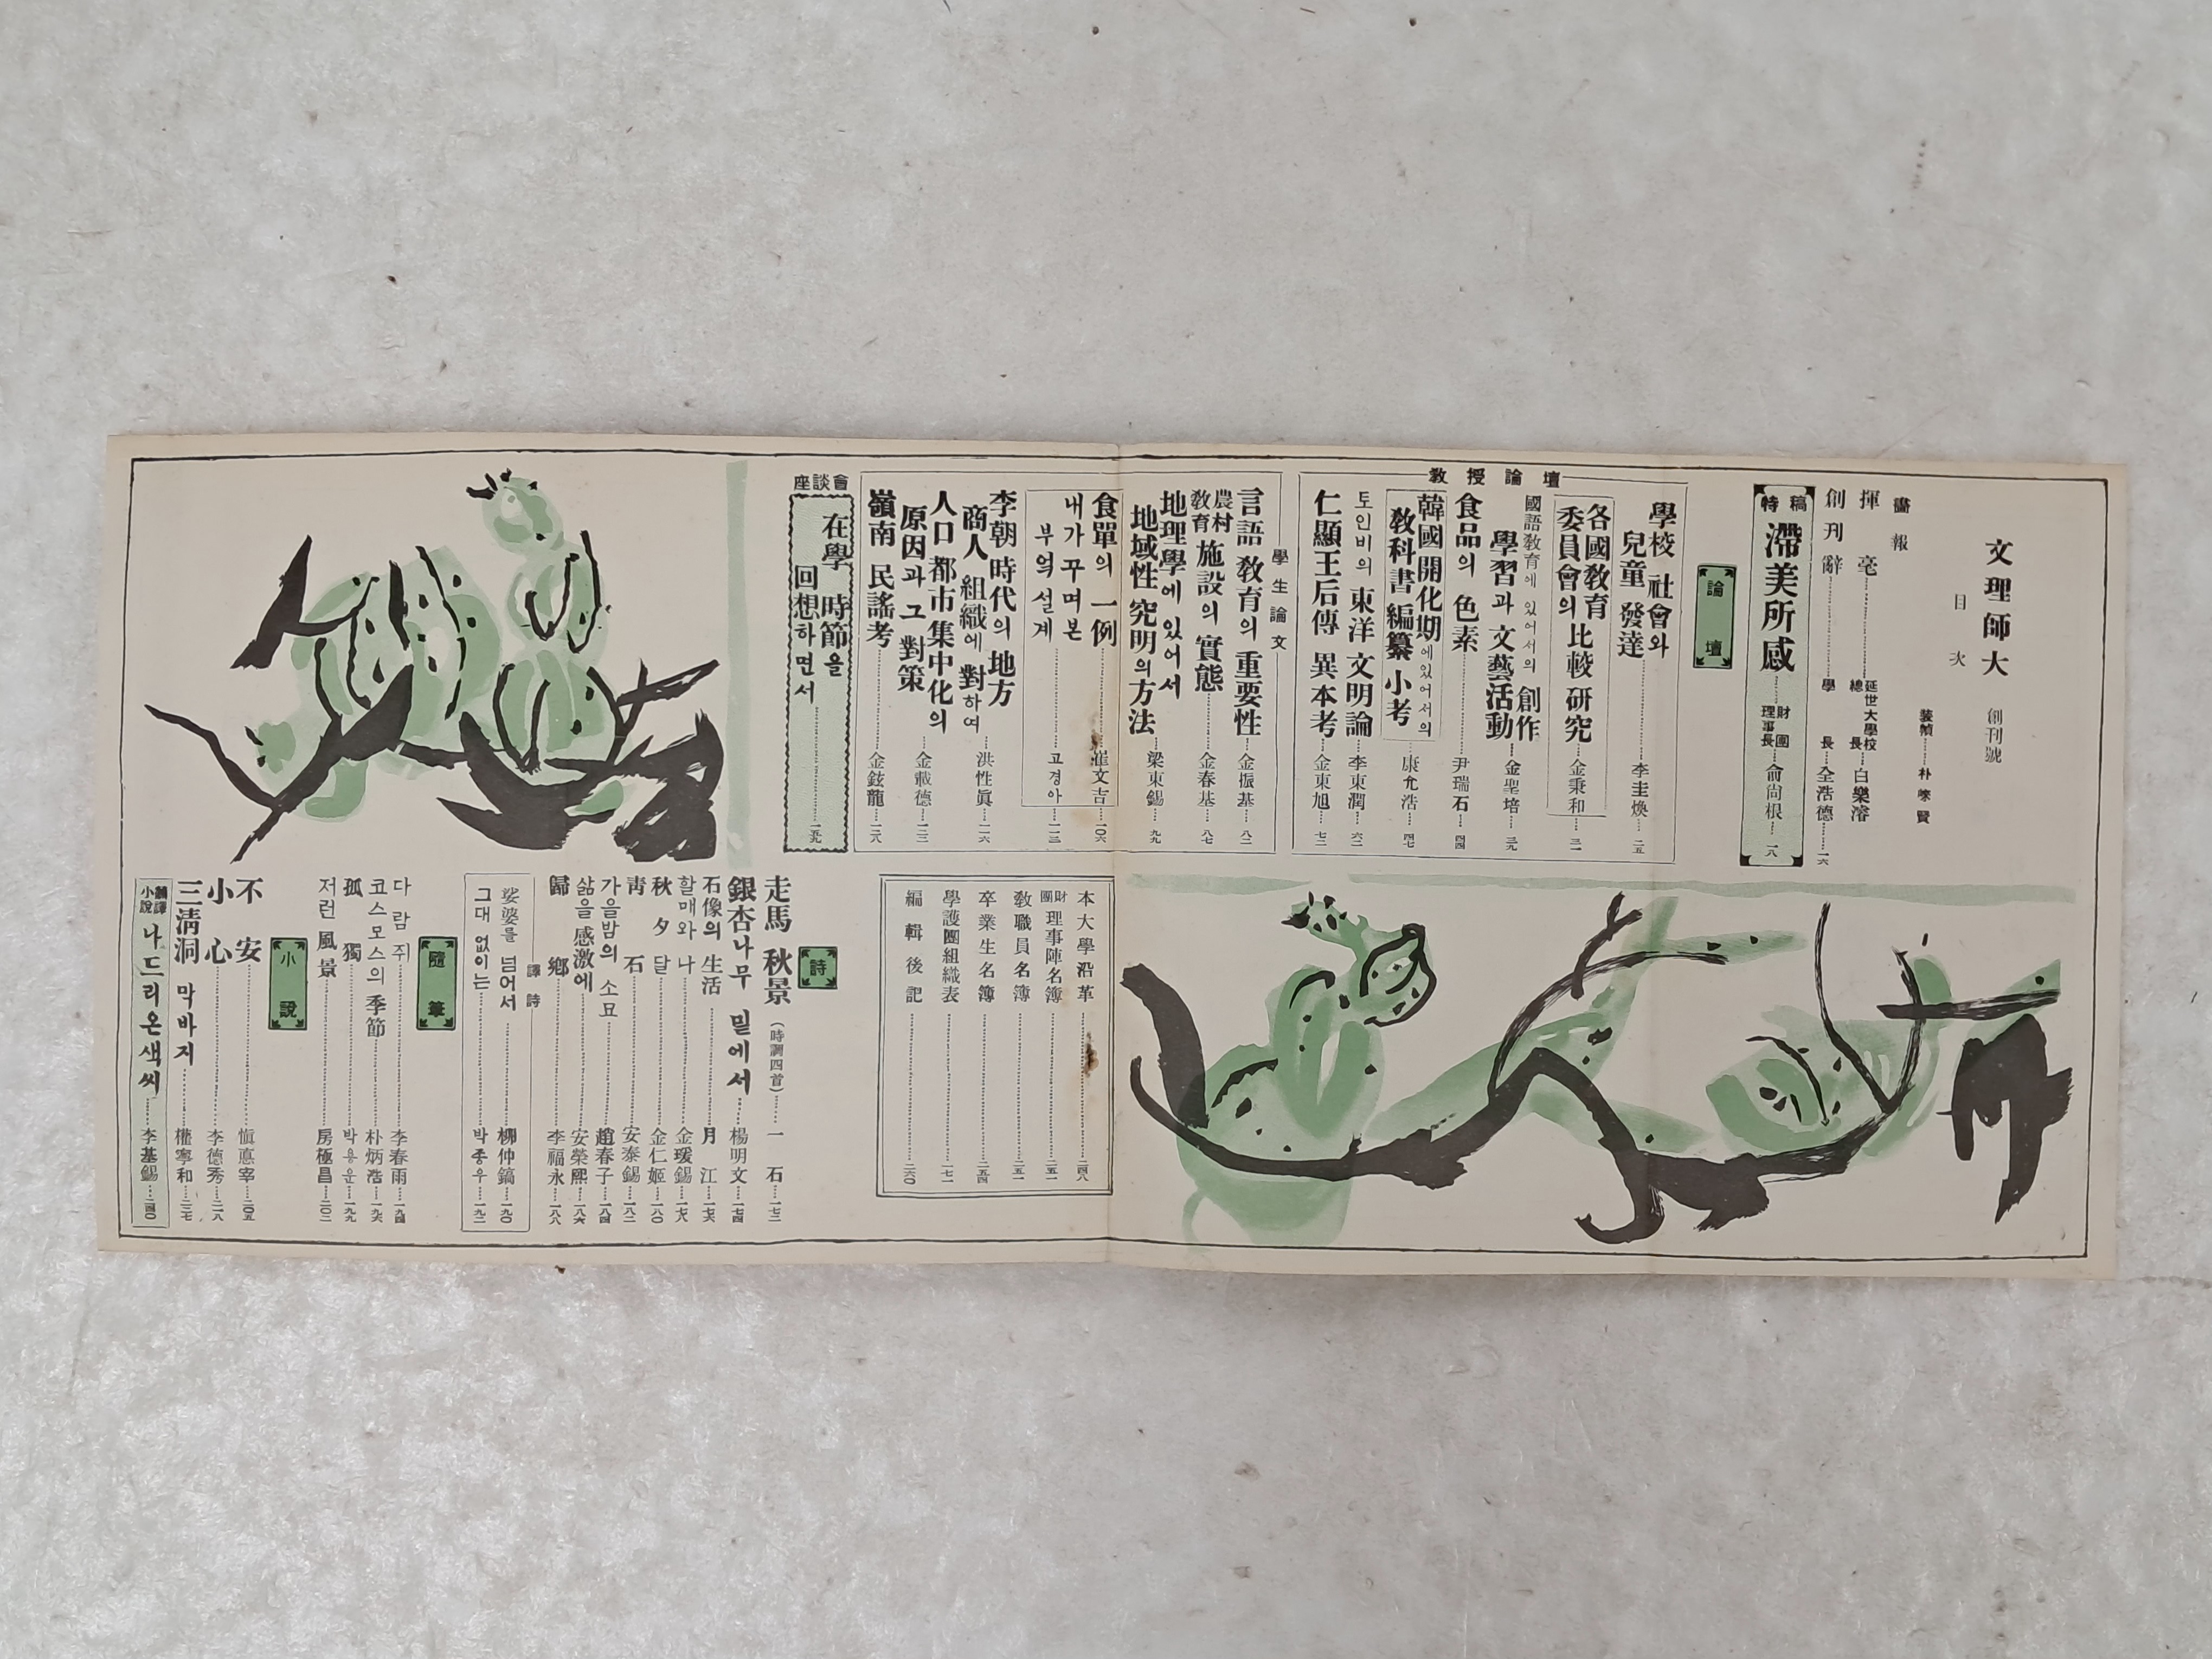 文理師大 創刊號
目次
裝幀……朴崍賢
畵報
揮毫……延世大學校總長 白樂濬
創刊辭……學長 全浩德……一六
特稿
滯美所感……財團理事長 兪尙根…一八
論壇
教授論壇
學校 社會와
兒童 發達……李圭煥…二五
各國教育
委員會의 比較 硏究……金秉和…三一
國語敎育에 있어서의 創作
學習과 文藝活動……金聖培…三九
食品의 色素……尹瑞石…四四
韓國開化期에있어서의
敎科書 編纂 小考……康允浩…四七
토인비의 東洋 文明論……李東潤…六二
仁顯王后傳 異本考……金東旭…七二
學生論文
言語 敎育의 重要性……金振基…八二
農村敎育 施設의 實態……金春基…八七
地理學에 있어서
地域性 究明의 方法……梁東錫…九九
食單의 一例……崔文吉…一〇六
내가 꾸며본
부엌 설계……고경아…一一三
李朝 時代의 地方
商人 組織에 對하여……洪性眞…一一六
人口 都市 集中化의
原因과 그 對策……金載德…一二二
嶺南 民謠考……金鉉龍…一二八
座談會
在學 時節을
回想하면서……一五九
本大學沿革……二四八
財團理事陣名簿……二五一
敎職員名簿……二五一
卒業生名簿……二五四
學護團組織表……一七一
編輯後記……二六〇
詩
走馬 秋景(時調四首)……一石…一七二
銀杏나무 밑에서……楊明文…一七四
石像의 生活……月江…一七六
할매와 나……金瑗錫…一七八
秋夕달……金仁姬…一八〇
靑石……安泰錫…一八二
가을밤의 소묘……趙春子…一八四
삶을 感激에……安榮熙…一八六
歸鄕……李福永…一八八
譯詩
娑婆를 넘어서……柳仲鎬…一九〇
그대 없이는……박종우…一九二
隨筆
다람쥐……李春雨…一九四
코스모스의 季節……朴炳浩…一九六
孤獨……박용운…一九九
저런 風景……房極昌…二〇二
小說
不安……愼惪宰…二〇五
小心……李德秀…二一八
三淸洞 막바지……權寧和…二二七
飜譯小說 나드리온색씨……李基錫…二四〇